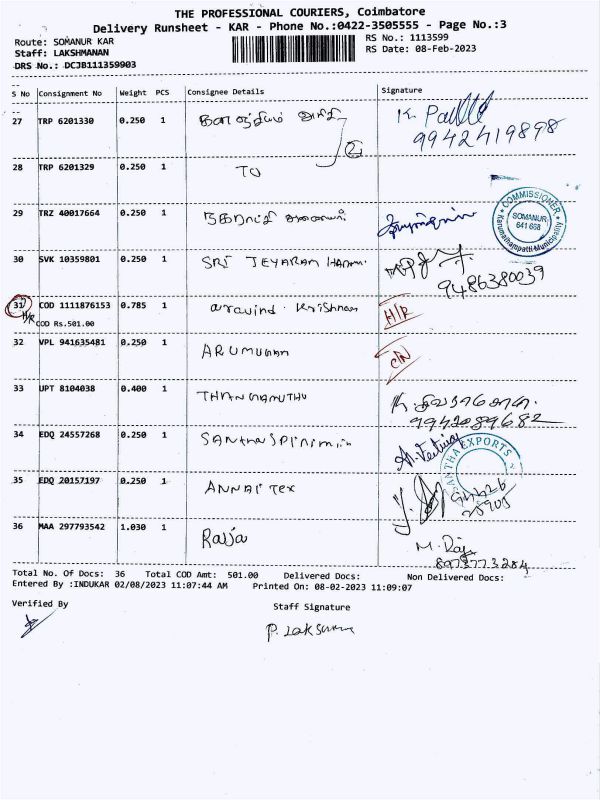 THE PROFESSIONAL COURIERS, Coimbatore
Delivery Runsheet - KAR - Phone No.:0422-3505555 - Page No.:3
Route: SOMANUR KAR
RS No.: 1113599
Staff: LAKSHMANAN
RS Date: 08-Feb-2023
DRS No.: DCJB111359903
S No Consignment No Weight PCS Consignee Details Signature
27 TRP 6201330 0.250 1 K.
9942419898
28 TRP 6201329 0.250 1 TO
29 TRZ 40017664 0.250 1
COMMISSIONER
SOMANUR
641 668
Karumathampatti Municipality
30 SVK 10359801 0.250 1 SRI JEYARAM
9486380039
31 COD 1111876153 0.785 1 aravind Krishnan H/R
H/R COD Rs.501.00
32 VPL 941635481 0.250 1 ARUMUGAM
33 UPT 8104038 0.400 1 THANGAMUTHU
9942089682
34 EDQ 24557268 0.250 1
EXPORTS
35 EDQ 20157197 0.250 1 ANNAI TEX
36 MAA 297793542 1.030 1 Raja M. Raja
8973773284
Total No. Of Docs: 36 Total COD Amt: 501.00 Delivered Docs: Non Delivered Docs:
Entered By :INDUKAR 02/08/2023 11:07:44 AM Printed On: 08-02-2023 11:09:07
Verified By Staff Signature